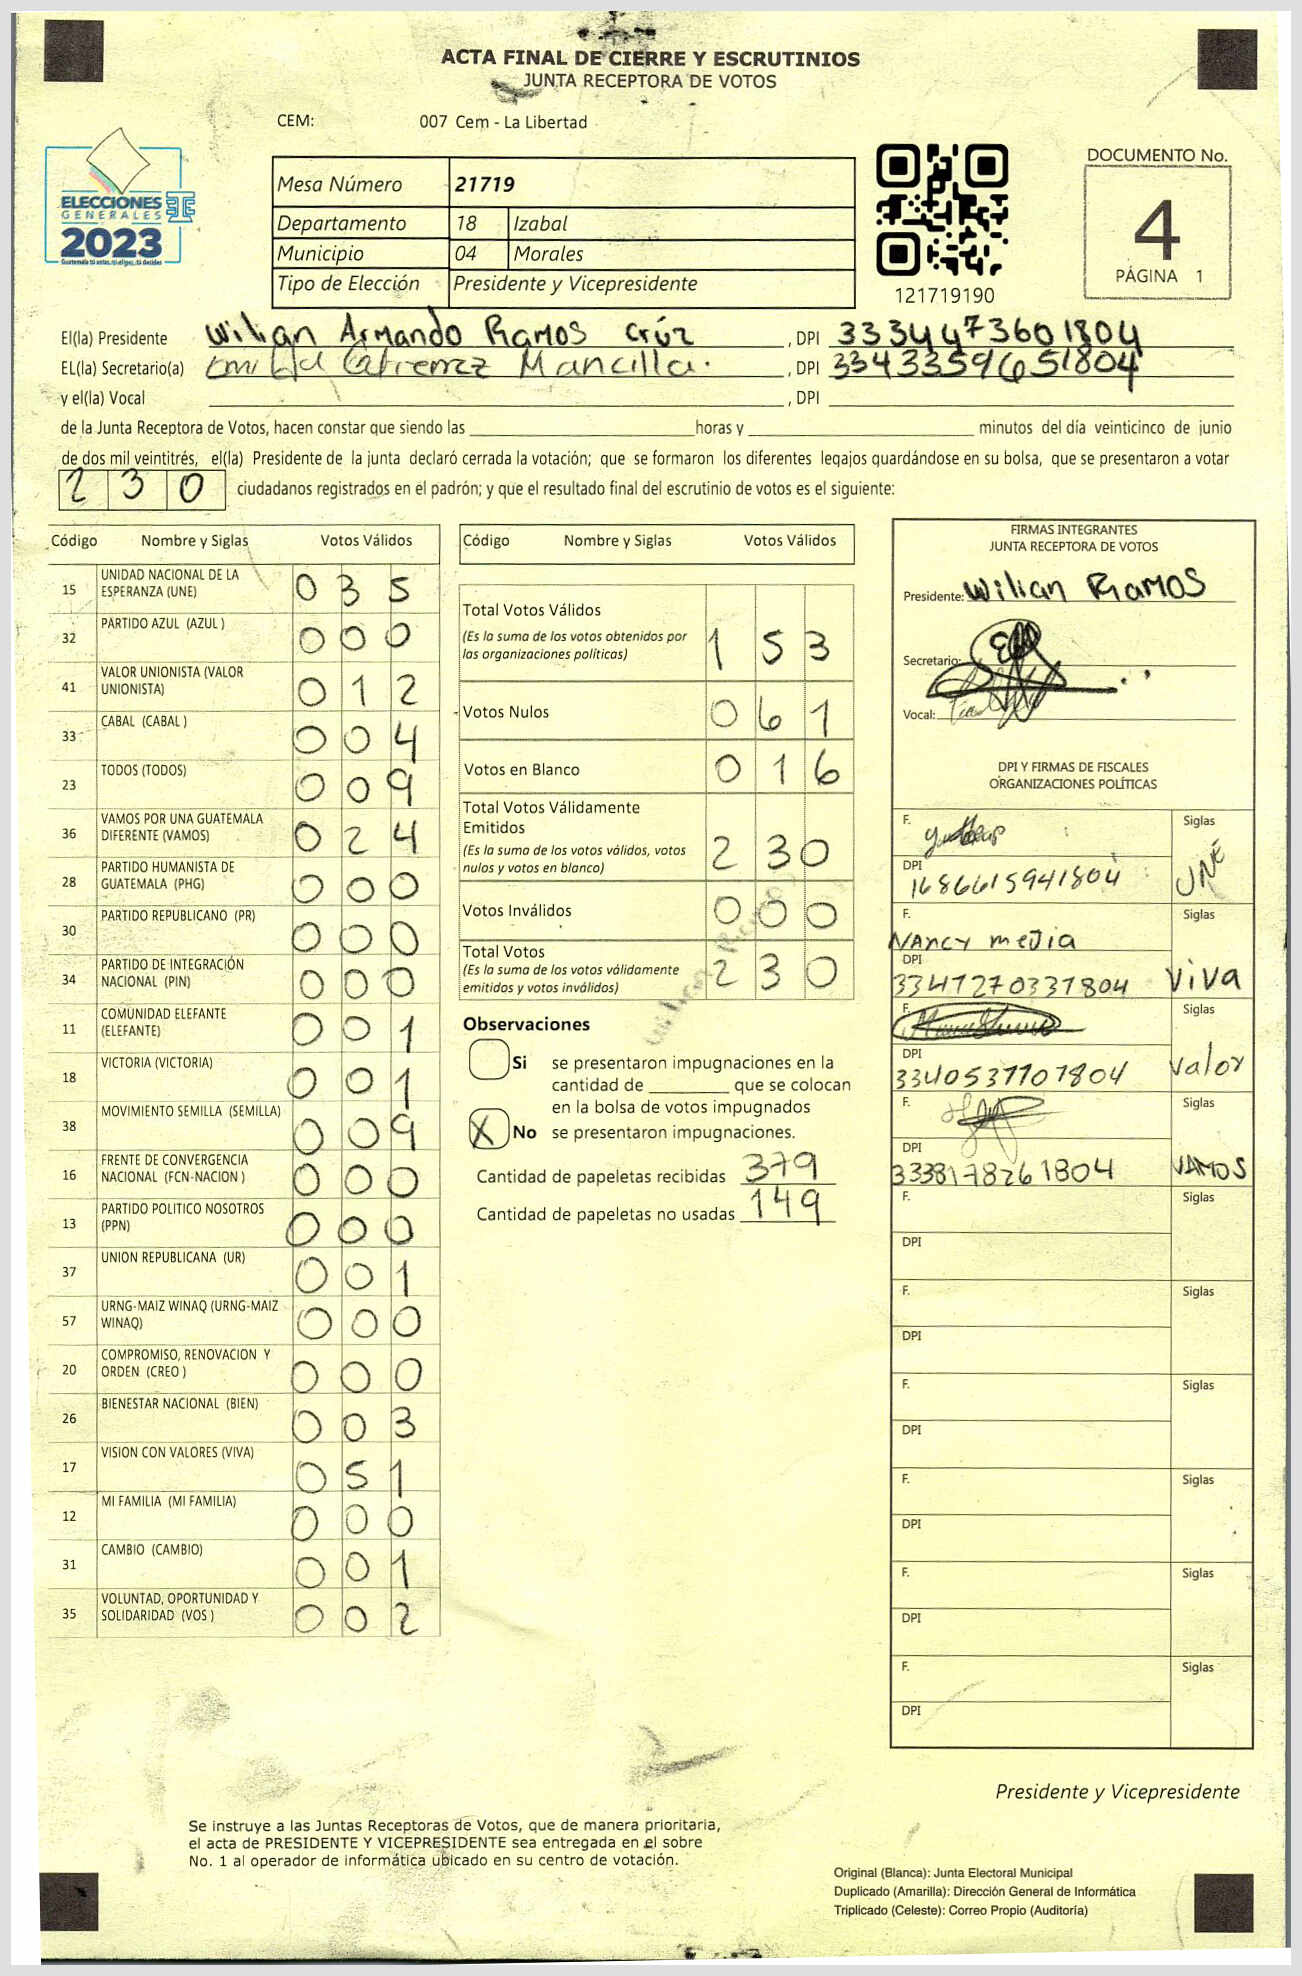 ACTA FINAL DE CIERRE Y ESCRUTINIOS
JUNTA RECEPTORA DE VOTOS
CEM: 007 Cem - La Libertad
ELECCIONES
GENERALES
2023
Guatemala tú votas, tú eliges, tú decides
Mesa Número 21719
Departamento 18 Izabal
Municipio 04 Morales
Tipo de Elección Presidente y Vicepresidente
121719190
DOCUMENTO No.
4
PÁGINA 1
El(la) Presidente Wilian Armando Ramos Crúz , DPI 3334473601804
EL(la) Secretario(a) Mancilla. , DPI 3343359651804
y el(la) Vocal , DPI
de la Junta Receptora de Votos, hacen constar que siendo las horas y minutos del día veinticinco de junio
de dos mil veintitrés, el(la) Presidente de la junta declaró cerrada la votación; que se formaron los diferentes legajos guardándose en su bolsa, que se presentaron a votar
230 ciudadanos registrados en el padrón; y que el resultado final del escrutinio de votos es el siguiente:
Código Nombre y Siglas Votos Válidos
15 UNIDAD NACIONAL DE LA ESPERANZA (UNE) 0 3 5
32 PARTIDO AZUL (AZUL ) 0 0 0
41 VALOR UNIONISTA (VALOR UNIONISTA) 0 1 2
33 CABAL (CABAL ) 0 0 4
23 TODOS (TODOS) 0 0 9
36 VAMOS POR UNA GUATEMALA DIFERENTE (VAMOS) 0 2 4
28 PARTIDO HUMANISTA DE GUATEMALA (PHG) 0 0 0
30 PARTIDO REPUBLICANO (PR) 0 0 0
34 PARTIDO DE INTEGRACIÓN NACIONAL (PIN) 0 0 0
11 COMUNIDAD ELEFANTE (ELEFANTE) 0 0 1
18 VICTORIA (VICTORIA) 0 0 1
38 MOVIMIENTO SEMILLA (SEMILLA) 0 0 9
16 FRENTE DE CONVERGENCIA NACIONAL (FCN-NACION ) 0 0 0
13 PARTIDO POLITICO NOSOTROS (PPN) 0 0 0
37 UNION REPUBLICANA (UR) 0 0 1
57 URNG-MAIZ WINAQ (URNG-MAIZ WINAQ) 0 0 0
20 COMPROMISO, RENOVACION Y ORDEN (CREO ) 0 0 0
26 BIENESTAR NACIONAL (BIEN) 0 0 3
17 VISION CON VALORES (VIVA) 0 5 1
12 MI FAMILIA (MI FAMILIA) 0 0 0
31 CAMBIO (CAMBIO) 0 0 1
35 VOLUNTAD, OPORTUNIDAD Y SOLIDARIDAD (VOS ) 0 0 2
Código Nombre y Siglas Votos Válidos
Total Votos Válidos 1 5 3
(Es la suma de los votos obtenidos por
las organizaciones políticas)
Votos Nulos 0 6 1
Votos en Blanco 0 1 6
Total Votos Válidamente
Emitidos 2 3 0
(Es la suma de los votos válidos, votos
nulos y votos en blanco)
Votos Inválidos 0 0 0
Total Votos 2 3 0
(Es la suma de los votos válidamente
emitidos y votos inválidos)
Observaciones
Si se presentaron impugnaciones en la
cantidad de que se colocan
en la bolsa de votos impugnados
X No se presentaron impugnaciones.
Cantidad de papeletas recibidas 379
Cantidad de papeletas no usadas 149
FIRMAS INTEGRANTES
JUNTA RECEPTORA DE VOTOS
Presidente: Wilian Ramos
Secretario:
Vocal:
DPI Y FIRMAS DE FISCALES
ORGANIZACIONES POLÍTICAS
F. Siglas
DPI 1686615941804 UNE
F. Siglas
Nancy media
DPI 3347270331804 Viva
F. Siglas
DPI 3340537107804 Valor
F. Siglas
DPI 3338178261804 VAMOS
F. Siglas
DPI
F. Siglas
DPI
F. Siglas
DPI
F. Siglas
DPI
F. Siglas
DPI
F. Siglas
DPI
Presidente y Vicepresidente
Se instruye a las Juntas Receptoras de Votos, que de manera prioritaria,
el acta de PRESIDENTE Y VICEPRESIDENTE sea entregada en el sobre
No. 1 al operador de informática ubicado en su centro de votación.
Original (Blanca): Junta Electoral Municipal
Duplicado (Amarilla): Dirección General de Informática
Triplicado (Celeste): Correo Propio (Auditoría)